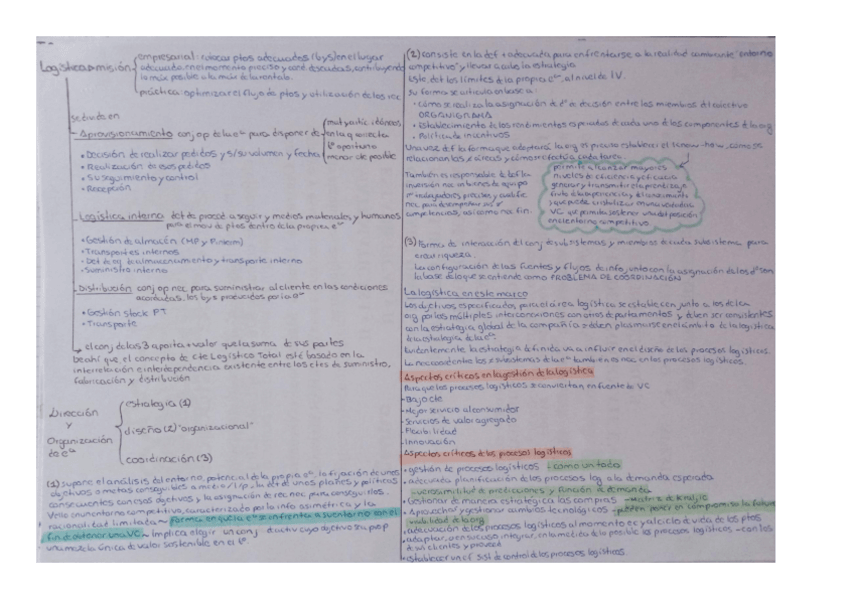 empresarial: colocar ptos adecuados (bys) en el lugar
Logística misión adecuado, en el momento preciso y cond deseadas, contribuyendo
lo más posible a la
práctica: optimizar el flujo de ptos y utilización de los rec
se divide en
Aprovisionamiento conj op de la eª para disponer de
en la q correcta
tº oportuno
menor cte posible
• Decisión de realizar pedidos y s/su volumen y fecha
• Realización de esos pedidos
• Su seguimiento y control
• Recepción
Logística interna det de proced a seguir y medios materiales y humanos
para el mov de ptos dentro de la propia eª
• Gestión de almacén (MP y
• Transportes internos
• Det de eq de almacenamiento y transporte interno
• Suministro interno
Distribución conj op nec para suministrar al cliente en las condiciones
acordadas, los bys producidos por la eª
• Gestión stock PT
• Transporte
el conj de las 3 aporta + valor que la suma de sus partes
De ahí que el concepto de Cte Logístico Total esté basado en la
interrelación e interdependencia existente entre los ctes de suministro,
fabricación y distribución
Dirección
y
Organización
de eª
estrategia (1)
diseño (2) "organizacional"
coordinación (3)
(1) supone el análisis del entorno, potencial de la propia eª, la fijación de unos
objetivos a metas conseguibles a medio / l/p, la def de unos planes y políticas
consecuentes con esos objetivos y la asignación de rec nec para conseguirlos.
Ve en un entorno competitivo, caracterizado por la info asimétrica y la
racionalidad limitada ~ forma en que la eª se enfrenta a su entorno con el
fin de obtener una VC ~ Implica elegir un conj de activ cuyo objetivo sea prop
una mezcla única de valor sostenible en el tº.
(2) consiste en la def + adecuada para enfrentarse a la realidad cambiante "entorno
competitivo" y llevar a cabo la estrategia
Este det los límites de la propia eª, al nivel de IV.
Su forma se articula en base a:
• cómo se realiza la asignación de dº de decisión entre los miembros del colectivo
ORGANIGRAMA
• Establecimiento de los rendimientos esperados de cada uno de los componentes de la org
Política de incentivos
Una vez def la forma que adoptará la org es preciso establecer el know-how, cómo se
relacionan las ≠ áreas y cómo se efectúa cada tarea.
También es responsable de def la
inversión nec en bienes de equipo
trabajadores precisos y cualific
nec para desempeñar sus
competencias, así como nec fin.
permite alcanzar mayores
niveles de eficiencia y eficacia
generar y transmitir el aprendizaje
fruto de la experiencia y el conocimiento
y que puede cristalizar en una verdadera
VC que permita sostener una def posición
en el entorno competitivo.
(3) Forma de interacción del conj de subsistemas y miembros de cada subsistema para
crear riqueza.
La configuración de las fuentes y flujos de info, junto con la asignación de los dº son
la base de lo que se entiende como PROBLEMA DE COORDINACIÓN
La logística en este marco
Los objetivos especificados para el área logística se establecen junto a los de la
org por las múltiples interconexiones con otros departamentos y deben ser consistentes
con la estrategia global de la compañía o deben plasmarse en el ámbito de la logística
de la estrategia de la eª.
Evidentemente, la estrategia definida va a influir en el diseño de los procesos logísticos.
La nec coord entre los ≠ subsistemas de la eª también es nec en los procesos logísticos.
Aspectos críticos en la gestión de la logística
Para que los procesos logísticos se conviertan en fuente de VC
- Bajo cte
- Mejor servicio al consumidor
- Servicios de valor agregado
- Flexibilidad
- Innovación
Aspectos críticos de los procesos logísticos
• gestión de procesos logísticos - como un todo
• adecuada planificación de los procesos log a la demanda esperada
predicciones y función de demanda
• Gestionar de manera estratégica las compras - matriz de Kraljic
• Aprovechar y gestionar cambios tecnológicos - pueden poner en compromiso la futura
viabilidad de la org
• adecuación de los procesos logísticos al momento ec y al ciclo de vida de los ptos
• adaptar, en su caso, integrar, en la medida de lo posible los procesos logísticos - con los
de sus clientes y proveed
• establecer un ef sist de control de los procesos logísticos.